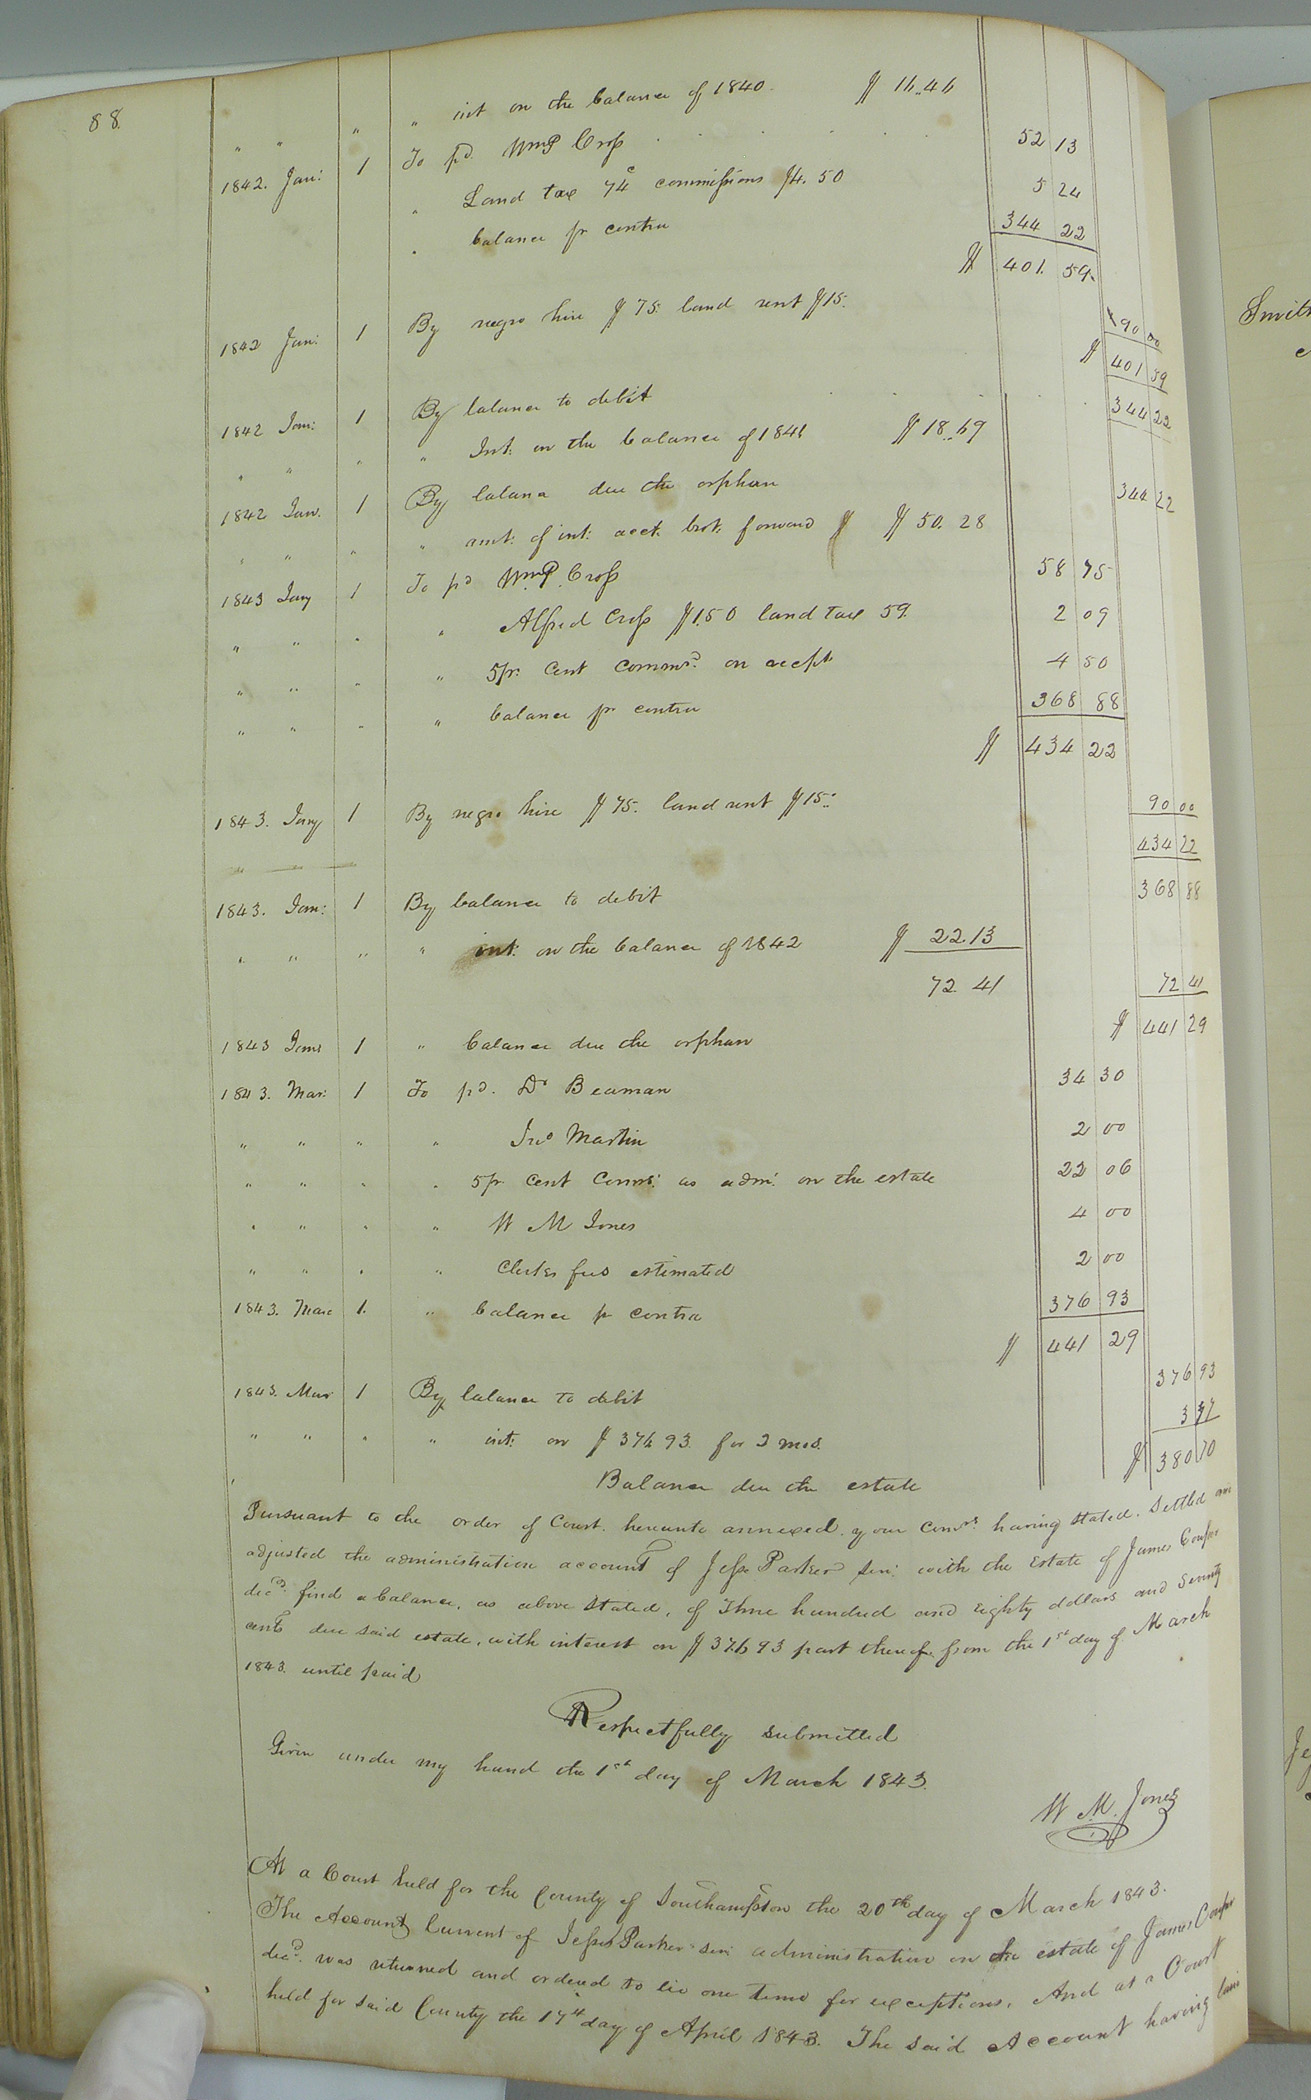 88.
" " " " int on the balance of 1840. $ 16..46
1842. Jan: 1 To pd. Wm P Cross 52 13
" Land tax 74c commissions $4.50 5 24
" balance pr contra 344 22
$ 401. 59.
1842 Jan: 1 By negro hire $75. land rent $15. 90 00
$ 401 59
1842 Jan: 1 By balance to debit 344 22
" " " " Int: on the balance of 1841 $ 18..69
1842 Jan. 1 By balance due the orphan 344 22
" " " " amt: of int: acct. brot. forward $ 50. 28
1843 Jany 1 To pd Wm P. Cross 58 75
" " " " Alfred Cross $1.50 land tax 59. 2 09
" " " " 5 pr. Cent Comms. on recpt 4 50
" " " " balance pr contra 368 88
$ 434 22
1843. Jany 1 By negro hire $75. land rent $15.. 90 00
434 22
1843. Jan: 1 By balance to debit 368 88
" " " " int: on the balance of 1842 $ 22.13
72. 41 72 41
$ 441 29
1843 Jany 1 " balance due the orphan
1843. Mar: 1 To pd. Dr Beaman 34 30
" " " " Jno Martin 2 00
" " " " 5 pr Cent Comms: as adm: on the estate 22 06
" " " " W M Jones 4 00
" " " " Clerks fees estimated 2 00
1843. Marc 1. " balance pr contra 376 93
$ 441 29
1843. Mar 1 By balance to debit 376 93
" " " " int: on $ 376 93. for 2 mos. 3 77
Balance due the estate $ 380 70
Pursuant to the order of Court. hereunto annexed. your Comrs. having stated. Settled
adjusted the administration account of Jesse Parker sen: with the Estate of James
decd. find a balance, as above stated, of Three hundred and eighty dollars and seventy
cents due said estate, with interest on $ 376 93 part thereof. from the 1st day of March
1843. until paid
Respectfully submitted
Given under my hand the 1st day of March 1843.
W M. Jones
At a Court held for the County of Southampton the 20th day of March 1843.
The Account Current of Jesse Parker sen administration on the estate of James
decd. was returned and ordered to lie one time for exceptions. And at a Court
held for said County the 17th day of April 1843. The said Account having